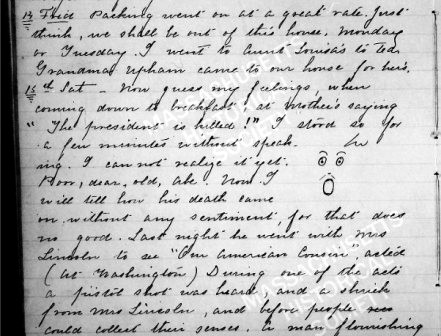 14 Frid Packing went on at a great rate. Just
think, we shall be out of this house, Monday
or Tuesday. I went to Aunt Louisa's to tea.
Grandma Upham came to our house for hers.
15th Sat - Now guess my feelings, when
coming down to breakfast at Mother's saying
"The president is killed!" I stood so for
a few minutes without speak-
ing. I can not realize it yet.
Poor, dear, old, Abe. Now I
will tell how his death came
on without any sentiment, for that does
no good. Last night he went with Mrs
Lincoln to see "Our American Cousin", acted
(At Washington) During one of the acts
a pistol shot was heard, and a shriek
from Mrs Lincoln, and before people
could collect their senses, a man flourishing